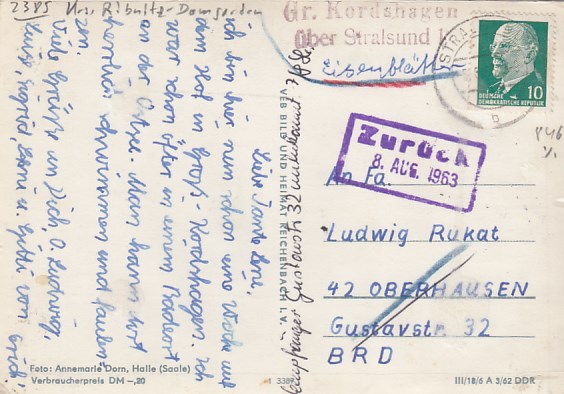 2385 Krs. Ribnitz-Damgarten
Gr. Kordshagen
über Stralsund 1
Eisenblätter
STRAL
10
DEUTSCHE
DEMOKRATISCHE REPUBLIK
Zurück
8. AUG. 1963
An Fa.
Ludwig Rukat
42 OBERHAUSEN
Gustavstr. 32
BRD
Empfänger Gustavstr. 32 unbekannt
Liebe Tante Lene,
ich bin hier nun schon eine Woche auf
dem Hof in Groß-Kordshagen. Ich
war schon öfter in einem Badeort
an der Ostsee. Man kann dort
herrlich schwimmen und faulen-
zen.
Viele Grüße an Dich, O. Ludwig,
Ingrid, u. von
VEB BILD UND HEIMAT REICHENBACH I. V.
Foto: Annemarie Dorn, Halle (Saale)
Verbraucherpreis DM -,20
1 3389
III/18/6 A 3/62 DDR